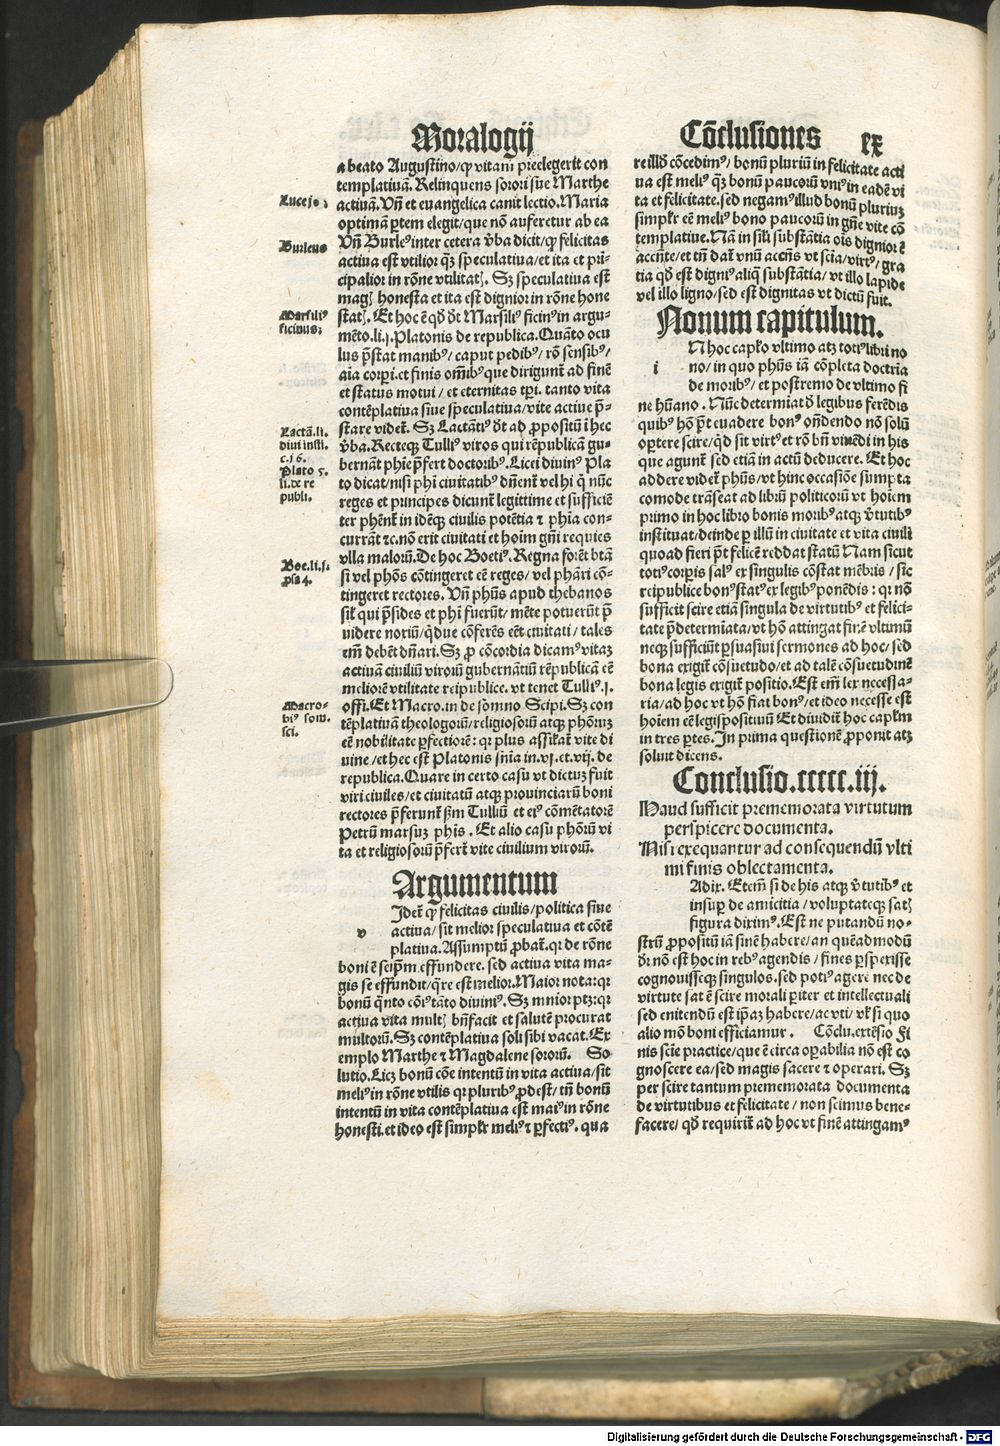 Moralogij
a beato Augustino/qꝫ vitam preelegerit con
templatiuā. Relinquens sorori sue Marthe
actiuā. Vn̄ et euangelica canit lectio. Maria
optimā ꝑtem elegit/que nō auferetur ab ea
Vn̄ Burleꝰ inter cetera v̄ba dicit/qꝫ felicitas
actiua est vtilior qꝫ speculatiua/et ita et prin-
cipalior in rōne vtilitatꝭ. Sꝫ speculatiua est
magꝭ honesta et ita est dignior in rōne hone
statꝭ. Et hoc ē qd̄ dt̄ Marsiliꝰ ficinꝰ in argu-
mēto.li.j. Platonis de republica. Quāto ocu
lus p̄stat manibꝰ/ caput pedibꝰ/ rō sensibꝰ/
aīa corpi.et finis om̄ibꝰ que dirigunt̄ ad finē
et status motui / et eternitas tp̄i. tanto vita
contēplatiua siue speculatiua/vite actiue p̄-
stare videt̄. Sꝫ Lactātiꝰ dt̄ ad ꝓpositū i hec
v̄ba. Recteqꝫ Tulliꝰ viros qui rēpublicā gu-
bernāt phie p̄fert doctoribꝰ. Licet diuinꝰ Pla
to dicat/nisi phi ciuitatibꝰ dn̄ent̄ vel hi q̄ nūc
reges et principes dicunt̄ legittime et sufficiē
ter phēnt̄ in idēqꝫ ciuilis potētia ⁊ phia con-
currāt ⁊c.nō erit ciuitati et hoīm gn̄i requies
vlla malorū. De hoc Boetiꝰ. Regna forēt btā
si vel phōs cōtingeret eē reges/ vel phāri cō-
tingeret rectores. Vn̄ phūs apud thebanos
sil̄ qui p̄sides et phi fuerūt/ mēte potuerūt p̄
videre noriū/q̄due cōferēs eēt ciuitati / tales
em̄ debēt dn̄ari. Sꝫ ꝓ cōcordia dicamꝰ vitaꝫ
actiuā ciuiliū virorū gubernātiū rēpublicā eē
meliorē vtilitate reipublice. vt tenet Tulliꝰ.j.
offi. Et Macro.in de somno Scipi. Sꝫ con
tēplatiuā theologorū/religiosorū atqꝫ phōruꝫ
eē nobilitate ꝑfectiorē: qꝛ plus assil̄at̄ vite di
uine/et hec est Platonis sn̄ia in.vj.et.vij. de
republica. Quare in certo casu vt dictuꝫ fuit
viri ciuiles/et ciuitatū atqꝫ prouinciarū boni
rectores p̄ferunt̄ sm̄ Tulliū et eiꝰ cōmētatorē
Petrū marsuꝫ phis . Et alio casu phōrū vi
ta et religiosorū p̄fert̄ vite ciuilium virorū.
Argumentum
v
Idet̄ qꝫ felicitas ciuilis/politica siue
actiua/sit melior speculatiua et cōtē
platiua. Assumptū ꝓbat̄.qꝛ de rōne
boni ē seip̄m effundere. sed actiua vita ma-
gis se effundit/q̄re est melior. Maior nota:qꝛ
bonū q̄nto cōiꝰ tāto diuiniꝰ. Sꝫ minior ptꝫ:qꝛ
actiua vita multꝭ bn̄facit et salutē procurat
multorū. Sꝫ contēplatiua soli sibi vacat. Ex
emplo Marthe ⁊ Magdalene sororū. So
lutio. Licꝫ bonū cōe intentū in vita actiua/sit
meliꝰ in rōne vtilis qꝛ pluribꝰ ꝓdest/ tn̄ bonū
intentū in vita contēplatiua est maiꝰ in rōne
honesti.et ideo est simpl̄r meliꝰ ⁊ ꝑfectiꝰ. qua
Luce jo
Burleus
Marsiliꝰ
ficinus:
Lactā.li.
diui insti.
c.16.
Plato 5.
li.de re
publi.
Boe.li.j.
ꝓsa 4.
Macro-
biꝰ som.
sci.
Cōclusiones
ex
re illd̄ cōcedimꝰ/ bonū pluriū in felicitate acti
ua est meliꝰ qꝫ bonū paucorū vniꝰ in eadē vi
ta et felicitate. sed negamꝰ illud bonū pluriuꝫ
simpl̄r eē meliꝰ bono paucorū in gn̄e vite cō
templatiue. Nā in sil̄i substātia ois dignior ē
accn̄te/et tn̄ dat̄ vnū accn̄s vt scīa/virtꝰ/ gra
tia qd̄ est digniꝰ aliq̄ substātia/ vt illo lapide
vel illo ligno/sed est dignitas vt dictū fuit.
Nonum capitulum.
i
N hoc capl̄o vltimo atqꝫ totiꝰ libri no
no/ in quo phūs iā cōpleta doctria
de moribꝰ/ et postremo de vltimo fi
ne hūano . Nūc determiat d̄ legibus ferēdis
quibꝰ hōm p̄t euadere bonꝰ on̄dendo nō solū
oꝑtere scire/qd̄ sit virtꝰ et rō bn̄ viuēdi in his
que agunt̄ sed etiā in actū deducere. Et hoc
addere videt̄ phūs/vt hinc occasiōe sumpta
comode trāseat ad librū politicorū vt hoīem
primo in hoc libro bonis moribꝰ atqꝫ v̄tutibꝰ
instituat/deinde ꝑ illū in ciuitate et vita ciuili
quoad fieri p̄t felicē reddat statū Nam sicut
totiꝰ corpis salꝰ ex singulis cōstat mēbris / sic
reipublice bonꝰ statꝰ ex legibꝰ ponēdis : qꝛ nō
sufficit scire etiā singula de virtutibꝰ et felici-
tate p̄determiata/vt hō attingat finē vltimū
neqꝫ sufficiūt ꝑsuasiui sermones ad hoc/sed
bona exigit̄ cōsuetudo/et ad talē cōsuetudinē
bona legis exigit̄ positio. Est em̄ lex necessa-
ria/ad hoc vt hō fiat bonꝰ/et ideo necesse est
hoīem eē legispositiuū Et diuidit̄ hoc capl̄m
in tres ꝑtes. In prima questionē ꝓponit atqꝫ
soluit dicens.
Conclusio.ccccc.iij.
Haud sufficit prememorata virtutum
perspicere documenta.
Nisi exequantur ad consequendū vlti
mi finis oblectamenta.
Adix. Etem̄ si de his atqꝫ v̄tutibꝰ et
insuꝑ de amicitia / voluptateqꝫ satꝭ
figura diximꝰ. Est ne putandū no-
strū ꝓpositū iā finē habere/an quēadmodū
dr̄ nō est hoc in rebꝰ agendis / fines ꝑspexisse
cognouisseqꝫ singulos.sed potiꝰ agere nec de
virtute sat ē scire morali ꝑiter et intellectuali
sed enitendū est ip̄aꝫ habere/ac vti/ vl̄ si quo
alio mō boni efficiamur . Cōclu.extēsio Fi
nis scīe practice/que ē circa oꝑabilia nō est co
gnoscere ea/sed magis facere ⁊ operari. Sꝫ
per scire tantum prememorata documenta
de virtutibus et felicitate / non scimus bene-
facere/ qd̄ requirit̄ ad hoc vt finē attingamꝰ
Digitalisierung gefördert durch die Deutsche Forschungsgemeinschaft - DFG